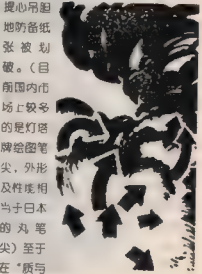 提心吊胆
地防备纸
张被划
破。（目
前国内市
场上较多
的是灯塔
牌绘图笔
尖，外形
及性能相
当于日本
的丸笔
尖）至于
在“质与